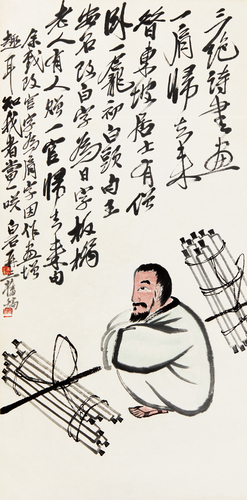 三絕詩書畫
一肩歸去來
昔東坡居士有僧
卧一菴初白頭句王
安石改白字為日字板橋
老人有人贈一官歸去來句
余戲改官字為肩字因作畫增
趣耳知我者當一咲白石